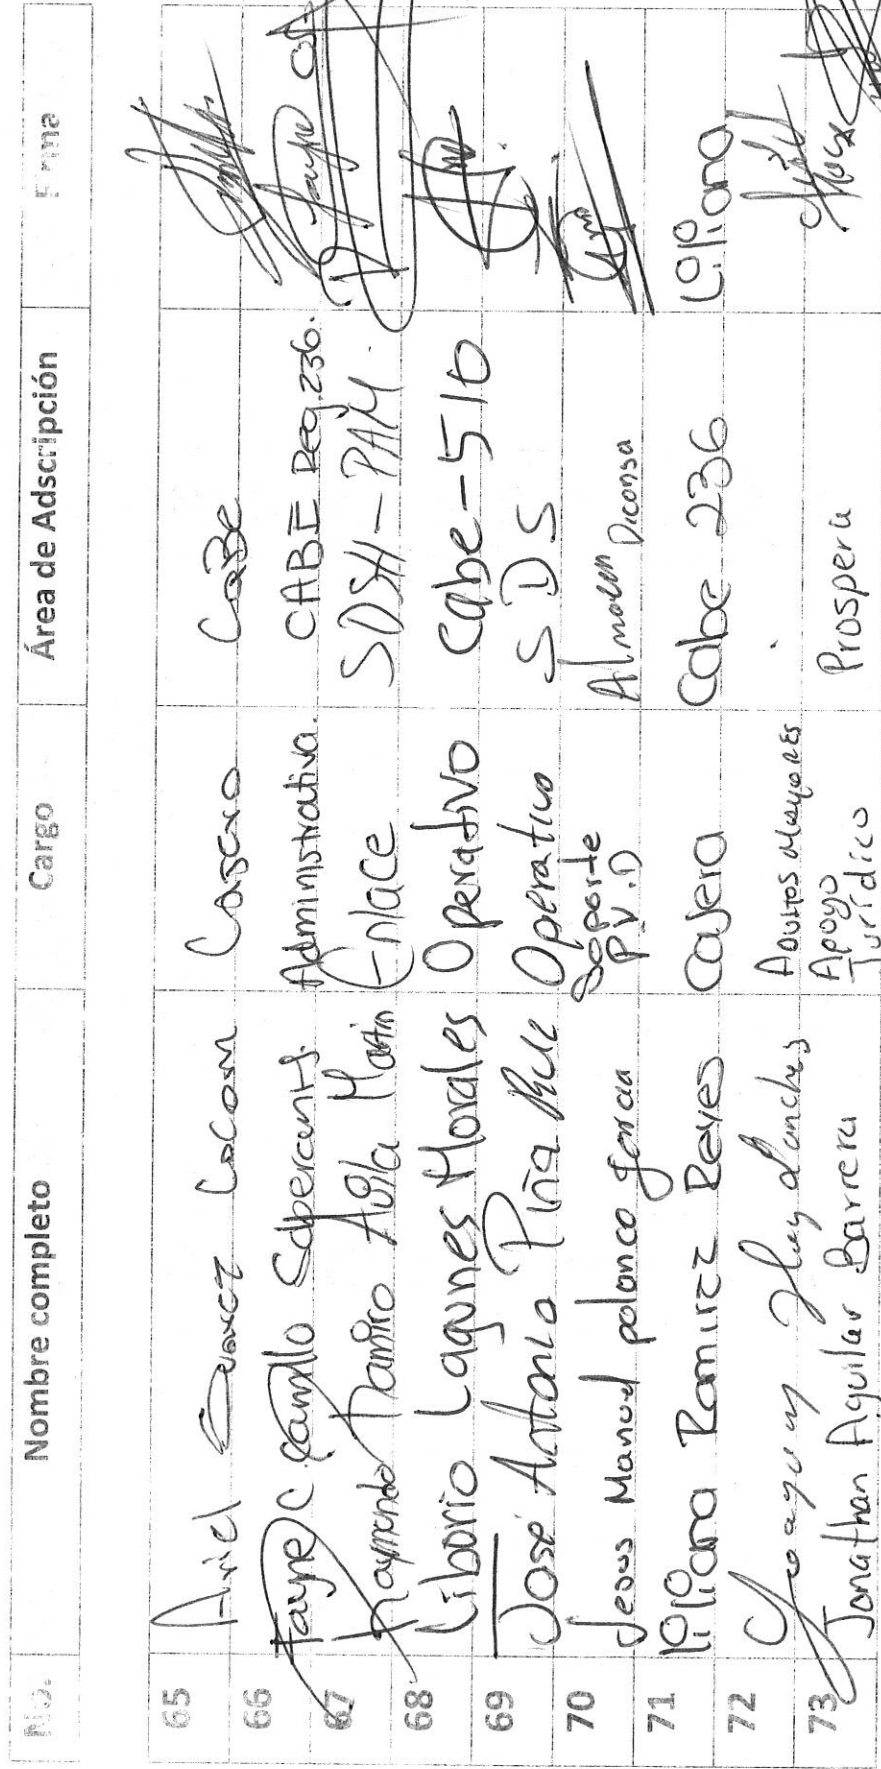 No. Nombre completo Cargo Área de Adscripción Firma
65 Ariel Cabe
66 Fayne C Camillo Administrativa. CABE Reg. 236.
67 Raymundo Ramiro Avila Marin Enlace SDSH-PAM.
68 Liborio Lagunes Morales Operativo Cabe-510
69 José Antonio Piña Operativo SDS
70 Jesus Manuel polanco garcia Soporte P.V.D Almacen Diconsa
71 liliana Ramirez Reyes Cajera Cabe 236 Liliana
72 Adultos Mayores
73 Jonathan Aguilar Barrera Apoyo Jurídico Prospera